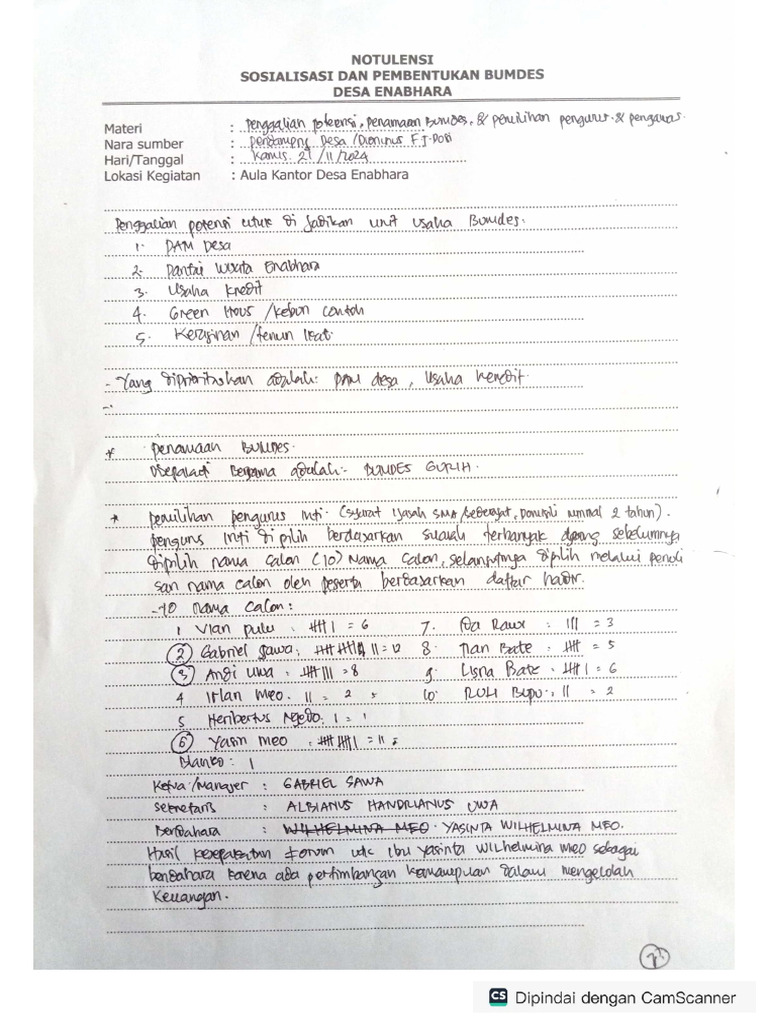 NOTULENSI
SOSIALISASI DAN PEMBENTUKAN BUMDES
DESA ENABHARA
Materi : Penggalian potensi, penamaan Bumdes, & pemilihan pengurus & pengawas.
Nara sumber : Pendamping Desa / Dioninus F.J. Dosi
Hari/Tanggal : Kamis. 21/11/2024
Lokasi Kegiatan : Aula Kantor Desa Enabhara
Penggalian potensi utuk di jadikan unit usaha Bumdes:
1. PAM Desa
2. Pantai wisata Enabhara
3. Usaha kredit
4. Green Hous / kebun contoh
5. Kerajinan / tenun ikat
- Yang diprioritaskan adalah: PAM desa, Usaha keredit.
-
* Penamaan BUMDES.
Disepakati Bersama adalah: BUMDES GURIH.
* Pemilihan pengurus Inti. (syarat ijasah SMA / sederajat, Domisili minimal 2 tahun).
pengurus inti di pilih berdasarkan suarah terbanyak dgang sebelumnya
dipilih nama calon (10) Nama calon, selanjutnya dipilih melalui penuli
san nama calon oleh peserta berdasarkan daftar hadir.
- 10 nama calon:
1 Vian pulu : |||| | = 6 7. Roa Rawi : ||| = 3
2 Gabriel Sawa : |||| |||| || = 12 8. Tian Bate : |||| = 5
3 Angi uwa : |||| ||| = 8 9. Lisna Bate : |||| | = 6
4 Irlan Meo. || = 2 10. RULI Bupu : || = 2
5 Heribertus Ngedo: | = 1
6 Yasin meo : |||| |||| | = 11
Blanko : 1
Ketua/Manajer : GABRIEL SAWA
Sekretaris : ALBIANUS HANDRIANUS UWA
Bendahara : WILHELMINA MEO. YASINTA WILHELMINA MEO.
Hasil kesepakatan forum utk ibu Yasinta Wilhelmina meo sebagai
bendahara karena ada pertimbangan kemampuan dalam mengelolah
Keuangan.
CS Dipindai dengan CamScanner